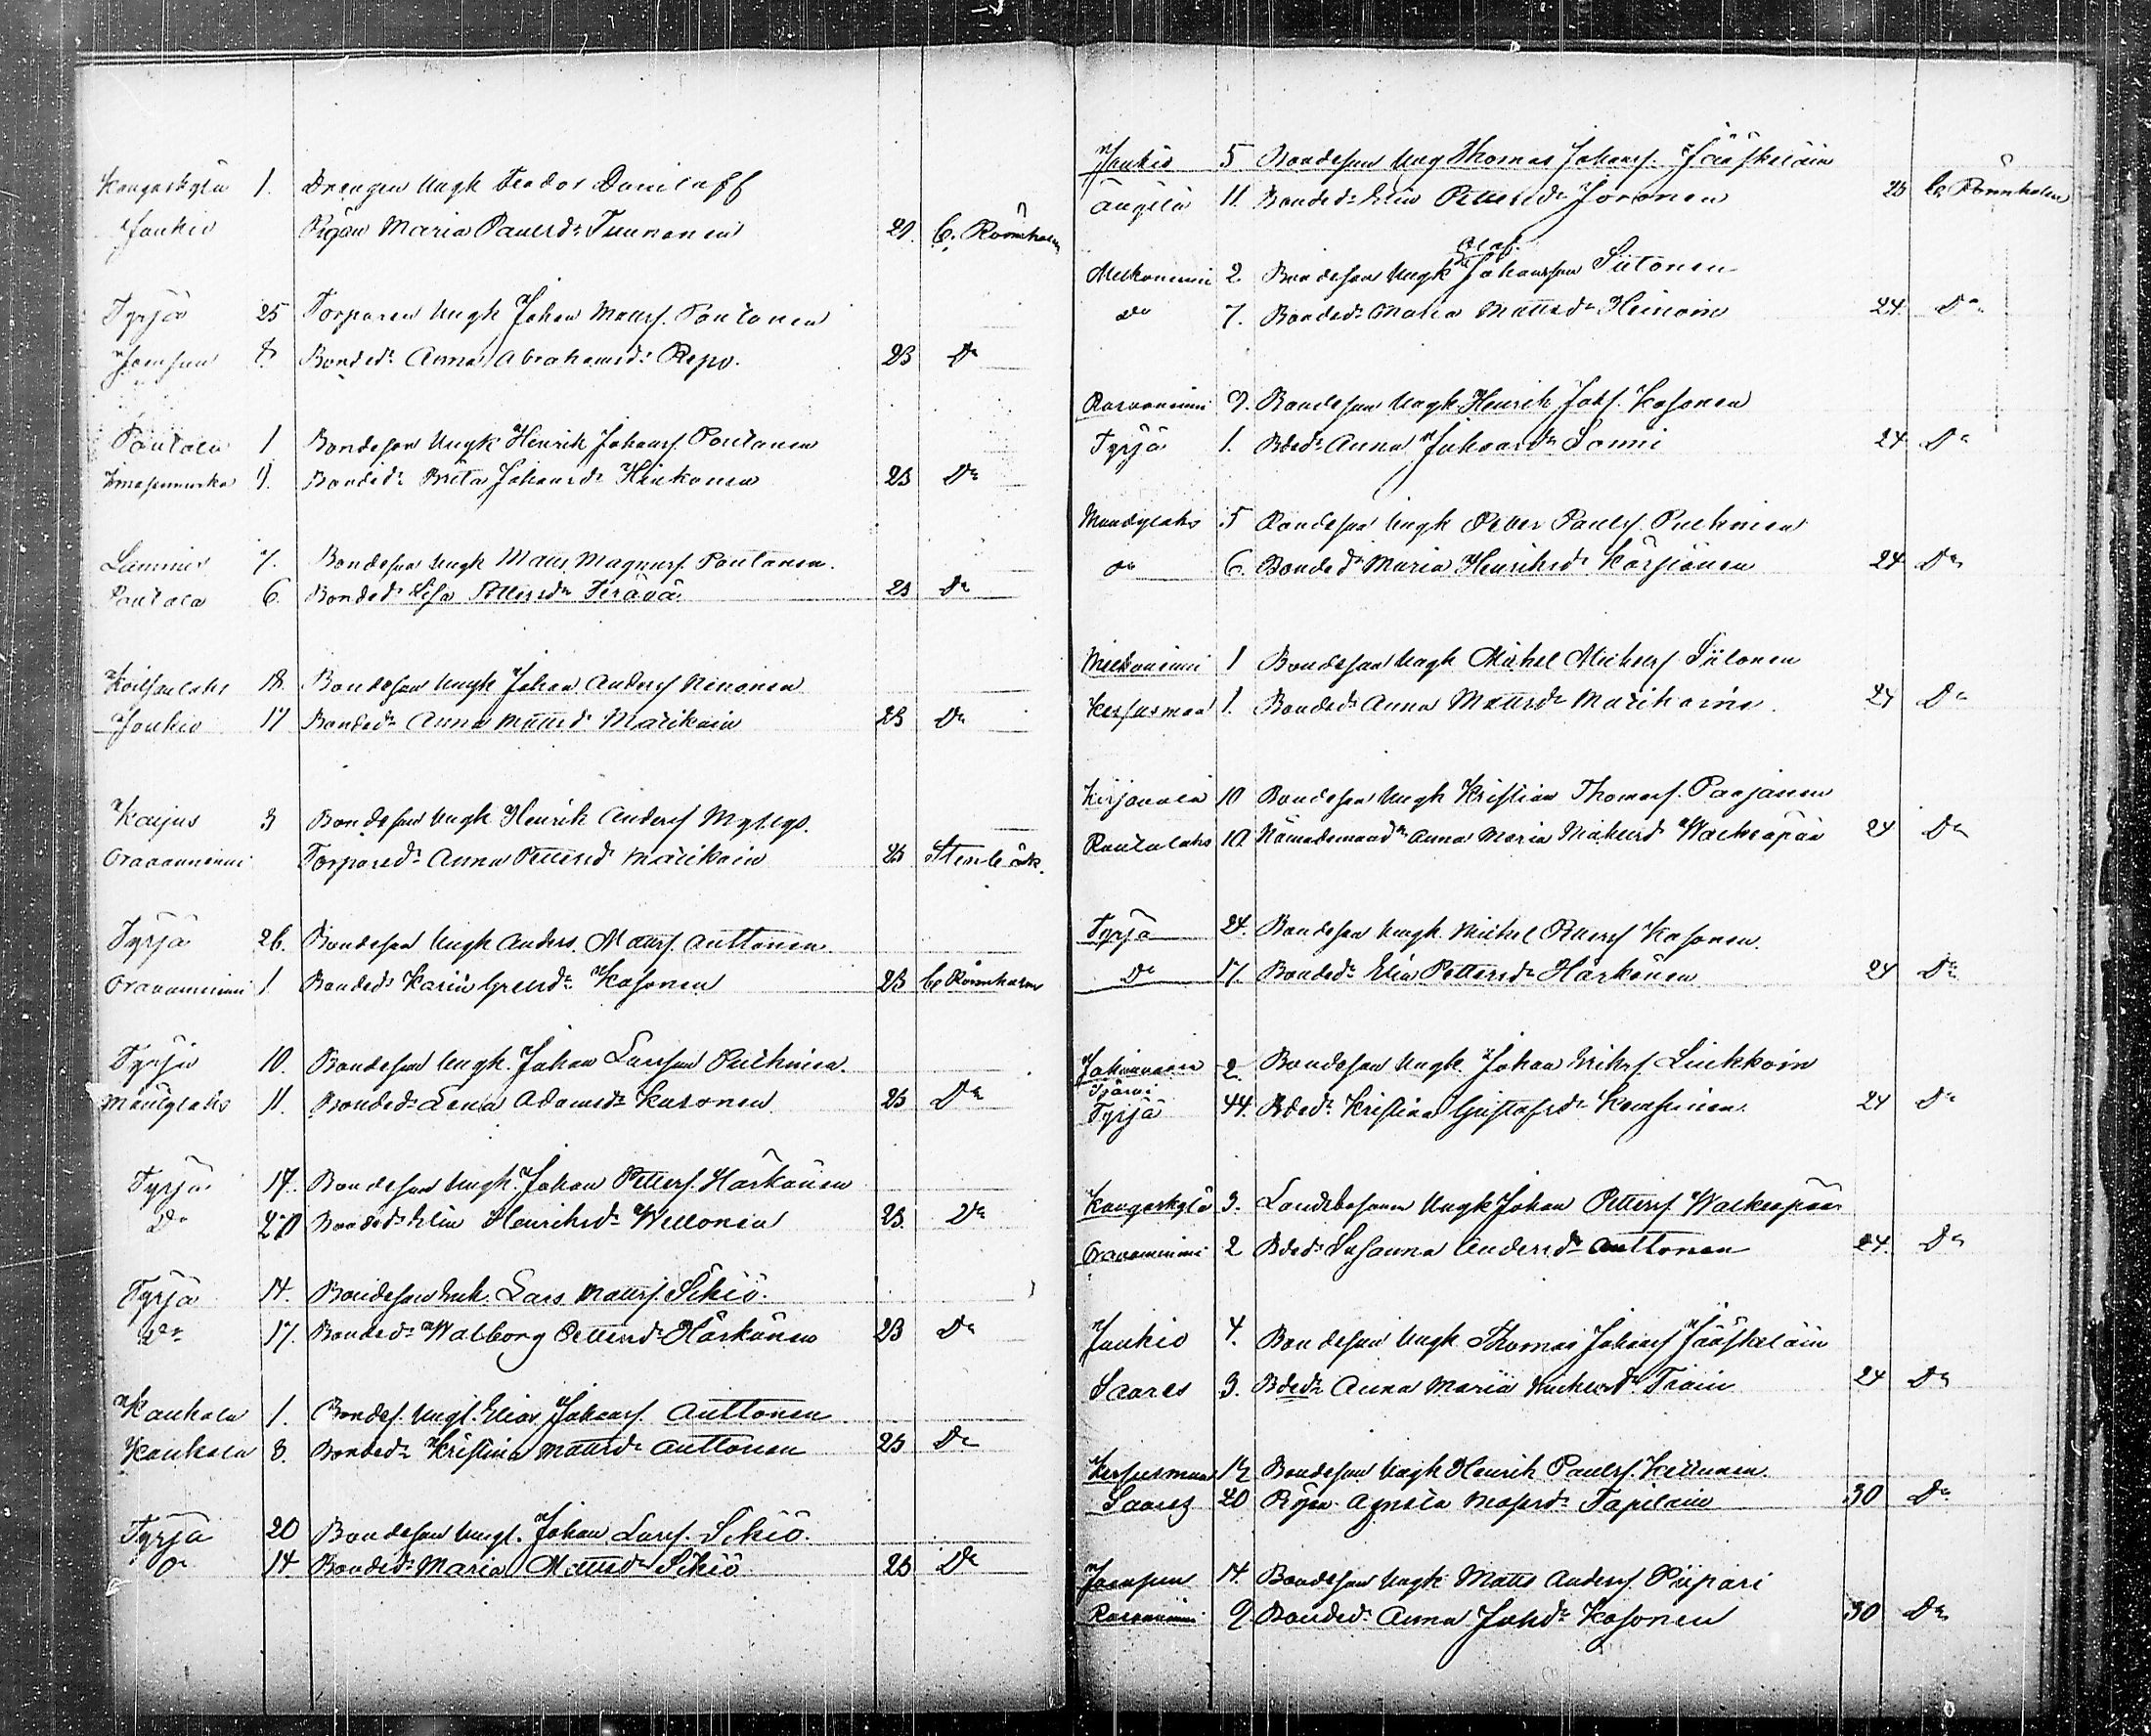 Kangaskylä 1. Drängen Ungk Feodor Daniloff
Jankio Pigan Maria Paulsdr Tunnonen 21. C. Rönnholm
Tyrjä 25 Torparen Ungk Johan Matts. Pontonen
Joensuu 8. Bonded. Anna Abrahamsdr Repo. 23 Do
Pontola 1 Bondeson Ungk Henrik Johans. Pontonen
9. Bonded. Brita Johansdr Hinkonen 23 Do
7. Bondeson Ungk Matts Magnuss. Pontonen.
Pontola 6. Bonded. Lisa Pettersdr Terävä 23 Do
Koitsanlaks 18. Bondeson Ungk Johan Anderss Ninonen
Jankio 17 Bonded. Anna Mattsdr Matikain 23 Do
Karjus 3 Bondeson Ungk Henrik Anderss Myllys.
Oravaniemi Torpared. Anna Pettersd Matikain 23 Stenbäck.
Tyrjä 26. Bondeson Ungk Anders Matts. Anttonen
Oravaniemi 1. Bonded. Karin Grelsdr Kosonen 23 C. Rönnholm
Tyrjä 10. Bondeson Ungk. Johan Larsson Puthinen.
Mentylaks 11. Bonded. Lena Adamsdr Kuronen 23 Do
Tyrjä 17. Bondeson Ungk. Johan Petters. Härkönen
Do 20 Bonded. Elin Henriksdr Wellonen 23. Do
Tyrjä 14. Bondeson Enk. Lars Matts. Sikiö.
Do 17. Bonded. Walborg Pettersdr Härkönen 23 Do
Kankala 1. Bondes. Ungk. Elias Johans. Anttonen
Kankala 3. Bonded. Kristina Mattsdr Anttonen 23 Do
Tyrjä 20 Bondeson Ungk. Johan Larss. Sikiö.
Do 14 Bonded. Maria Mattsdr Sikiö 23 Do
Jankio 5 Bondeson Ung Thomas Johans. Jääskeläin
Änkilä 11. Bonded. Elin Pettersdr Joronen 23 C. Rönnholm
Olof
Melkoniemi 2. Bondeson Ungk Johansson Siitonen
Do 7. Bonded. Maria Mattsdr Heinoin 24. Do
Rasvaniemi 9. Bondeson Ungk Henrik Johs. Kosonen
Tyrjä 1. Bded. Anna Johansdr Sonni 24 Do
Mendylaks 5 Bondeson Ungk Petter Pauls. Puthinen
Do 6. Bonded. Maria Henriksdr Kärjiänen 24 Do
Melkoniemi 1 Bondeson Ungk Mickel Mickels. Siitonen
Kersusmaa 1. Bonded. Anna Mattsdr Matikain 24 Do
Kirjavala 10 Bondeson Ungk Kristian Thomass. Paajanen
Rautalaks 10. Nämndemansd. Anna Maria Mickelsd Walkeapää 24 Do
Tyrjä 24. Bondeson Ungk Mickel Petters Kosonen
Do 17. Bonded. Elin Pettersdr Härkönen 24 Do
2. Bondeson Ungk Johan Eriks. Liukkoin
Tyrjä 44. Bded. Kristina Gustafsdr Kemppinen 24 Do
Kangaskylä 3. Landtbosonen Ungk Johan Petters. Walkeapää
Oravaniemi 2 Bded. Susanna Andersdr Anttonen 24. Do
Jankio 4. Bondeson Ungk Thomas Johans Jääskeläin
Saares 3. Bded. Anna Maria Mickelsdr Tiain 24 Do
Kersusmaa 12 Bondeson Ungk Henrik Pauls. Kettunen
Saares 20 Pigan Agneta Matsdr Tapilain 30 Do
Joensuu 14. Bondeson Ungk Matts Anderss. Piipari
Rasvaniemi 9. Bonded. Anna Johdr Kosonen 30 Do